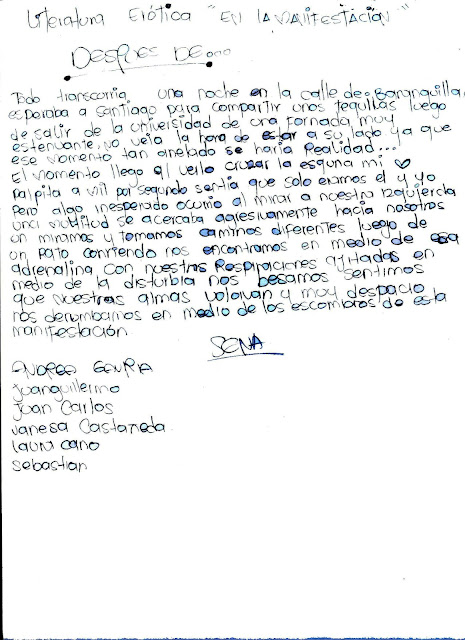 Literatura Erótica "EN LA MANIFESTACIÓN"
DESPUES DE...
Todo transcurria una noche en la calle de Baranquilla,
esperaba a santiago para compartir unos tequillas luego
de salir de la universidad de una Jornada muy
estenuante, yo veia la hora de estar a su lado ya que
ese momento tan anelado se haria Realidad...
El momento llego al verlo cruzar la esquina mi ♡
palpita a mil por segundo sentia que solo eramos el y yo
Pero algo inesperado ocurrio al mirar a nuestra Izquierda
una multitud se acercaba agresivamente hacia nosotros
un miramos y tomamos caminos diferentes luego de
un Rato corriendo nos encontramos en medio de esa
adrenalina con nuestras Respiraciones agitadas en
medio de la disturbia nos besamos sentimos
que nuestras almas volavan y muy despacio
nos derrumbamos en medio de los escombros de esta
manifestación.
SENA
Juanguillermo
Juan Carlos
Vanesa Castaneda
laura cano
Sebastian